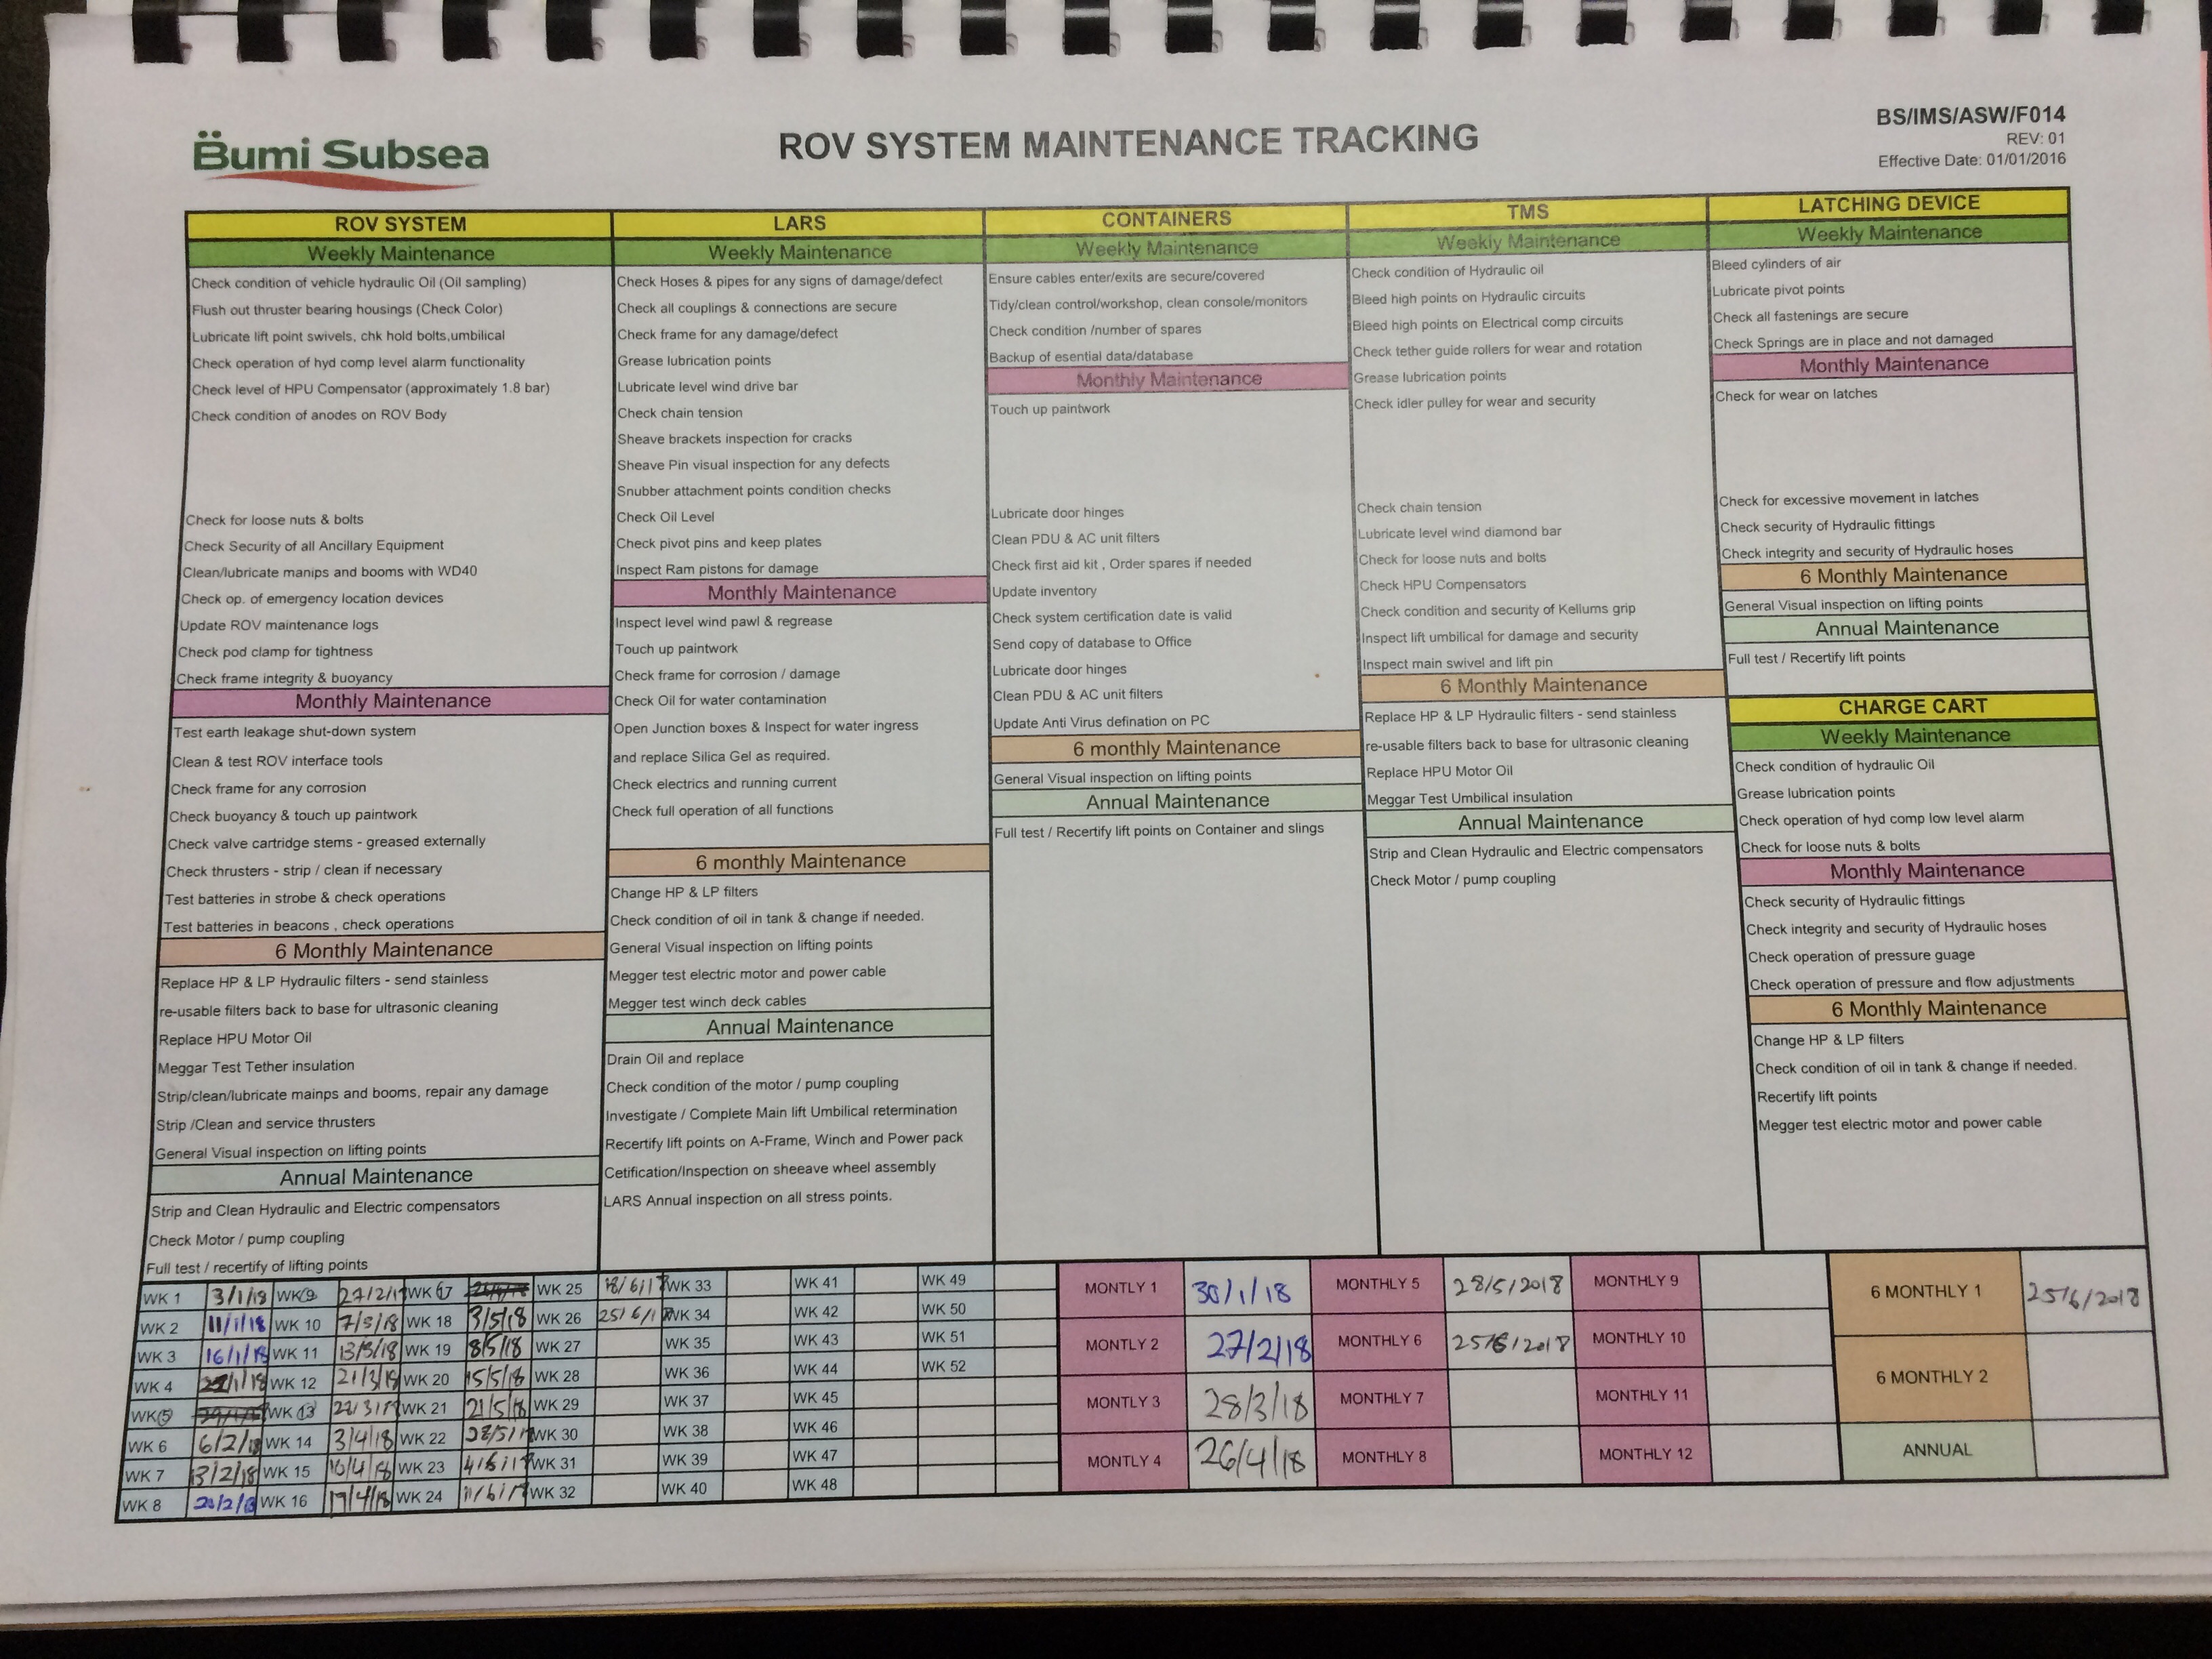 Bumi Subsea
ROV SYSTEM MAINTENANCE TRACKING
BS/IMS/ASW/F014
REV: 01
Effective Date: 01/01/2016
ROV SYSTEM
Weekly Maintenance
Check condition of vehicle hydraulic Oil (Oil sampling)
Flush out thruster bearing housings (Check Color)
Lubricate lift point swivels, chk hold bolts,umbilical
Check operation of hyd comp level alarm functionality
Check level of HPU Compensator (approximately 1.8 bar)
Check condition of anodes on ROV Body
Check for loose nuts & bolts
Check Security of all Ancillary Equipment
Clean/lubricate manips and booms with WD40
Check op. of emergency location devices
Update ROV maintenance logs
Check pod clamp for tightness
Check frame integrity & buoyancy
Monthly Maintenance
Test earth leakage shut-down system
Clean & test ROV interface tools
Check frame for any corrosion
Check buoyancy & touch up paintwork
Check valve cartridge stems - greased externally
Check thrusters - strip / clean if necessary
Test batteries in strobe & check operations
Test batteries in beacons , check operations
6 Monthly Maintenance
Replace HP & LP Hydraulic filters - send stainless
re-usable filters back to base for ultrasonic cleaning
Replace HPU Motor Oil
Meggar Test Tether insulation
Strip/clean/lubricate mainps and booms, repair any damage
Strip /Clean and service thrusters
General Visual inspection on lifting points
Annual Maintenance
Strip and Clean Hydraulic and Electric compensators
Check Motor / pump coupling
Full test / recertify of lifting points
LARS
Weekly Maintenance
Check Hoses & pipes for any signs of damage/defect
Check all couplings & connections are secure
Check frame for any damage/defect
Grease lubrication points
Lubricate level wind drive bar
Check chain tension
Sheave brackets inspection for cracks
Sheave Pin visual inspection for any defects
Snubber attachment points condition checks
Check Oil Level
Check pivot pins and keep plates
Inspect Ram pistons for damage
Monthly Maintenance
Inspect level wind pawl & regrease
Touch up paintwork
Check frame for corrosion / damage
Check Oil for water contamination
Open Junction boxes & Inspect for water ingress
and replace Silica Gel as required.
Check electrics and running current
Check full operation of all functions
6 monthly Maintenance
Change HP & LP filters
Check condition of oil in tank & change if needed.
General Visual inspection on lifting points
Megger test electric motor and power cable
Megger test winch deck cables
Annual Maintenance
Drain Oil and replace
Check condition of the motor / pump coupling
Investigate / Complete Main lift Umbilical retermination
Recertify lift points on A-Frame, Winch and Power pack
Cetification/Inspection on sheeave wheel assembly
LARS Annual inspection on all stress points.
CONTAINERS
Weekly Maintenance
Ensure cables enter/exits are secure/covered
Tidy/clean control/workshop, clean console/monitors
Check condition /number of spares
Backup of esential data/database
Monthly Maintenance
Touch up paintwork
Lubricate door hinges
Clean PDU & AC unit filters
Check first aid kit , Order spares if needed
Update inventory
Check system certification date is valid
Send copy of database to Office
Lubricate door hinges
Clean PDU & AC unit filters
Update Anti Virus defination on PC
6 monthly Maintenance
General Visual inspection on lifting points
Annual Maintenance
Full test / Recertify lift points on Container and slings
TMS
Weekly Maintenance
Check condition of Hydraulic oil
Bleed high points on Hydraulic circuits
Bleed high points on Electrical comp circuits
Check tether guide rollers for wear and rotation
Grease lubrication points
Check idler pulley for wear and security
Check chain tension
Lubricate level wind diamond bar
Check for loose nuts and bolts
Check HPU Compensators
Check condition and security of Kellums grip
Inspect lift umbilical for damage and security
Inspect main swivel and lift pin
6 Monthly Maintenance
Replace HP & LP Hydraulic filters - send stainless
re-usable filters back to base for ultrasonic cleaning
Replace HPU Motor Oil
Meggar Test Umbilical insulation
Annual Maintenance
Strip and Clean Hydraulic and Electric compensators
Check Motor / pump coupling
LATCHING DEVICE
Weekly Maintenance
Bleed cylinders of air
Lubricate pivot points
Check all fastenings are secure
Check Springs are in place and not damaged
Monthly Maintenance
Check for wear on latches
Check for excessive movement in latches
Check security of Hydraulic fittings
Check integrity and security of Hydraulic hoses
6 Monthly Maintenance
General Visual inspection on lifting points
Annual Maintenance
Full test / Recertify lift points
CHARGE CART
Weekly Maintenance
Check condition of hydraulic Oil
Grease lubrication points
Check operation of hyd comp low level alarm
Check for loose nuts & bolts
Monthly Maintenance
Check security of Hydraulic fittings
Check integrity and security of Hydraulic hoses
Check operation of pressure guage
Check operation of pressure and flow adjustments
6 Monthly Maintenance
Change HP & LP filters
Check condition of oil in tank & change if needed.
Recertify lift points
Megger test electric motor and power cable
WK 1 3/1/18 WK 9 27/2/18 WK 17 WK 25 18/6/18 WK 33 WK 41 WK 49
WK 2 11/1/18 WK 10 7/3/18 WK 18 3/5/18 WK 26 25/6/18 WK 34 WK 42 WK 50
WK 3 16/1/18 WK 11 13/3/18 WK 19 8/5/18 WK 27 WK 35 WK 43 WK 51
WK 4 WK 12 21/3/18 WK 20 15/5/18 WK 28 WK 36 WK 44 WK 52
WK 5 WK 13 WK 21 21/5/18 WK 29 WK 37 WK 45
WK 6 6/2/18 WK 14 3/4/18 WK 22 WK 30 WK 38 WK 46
WK 7 13/2/18 WK 15 10/4/18 WK 23 4/6/18 WK 31 WK 39 WK 47
WK 8 20/2/18 WK 16 17/4/18 WK 24 11/6/18 WK 32 WK 40 WK 48
MONTLY 1 30/1/18 MONTHLY 5 28/5/2018 MONTHLY 9
MONTLY 2 27/2/18 MONTHLY 6 25/6/2018 MONTHLY 10
MONTLY 3 28/3/18 MONTHLY 7 MONTHLY 11
MONTLY 4 26/4/18 MONTHLY 8 MONTHLY 12
6 MONTHLY 1 25/6/2018
6 MONTHLY 2
ANNUAL